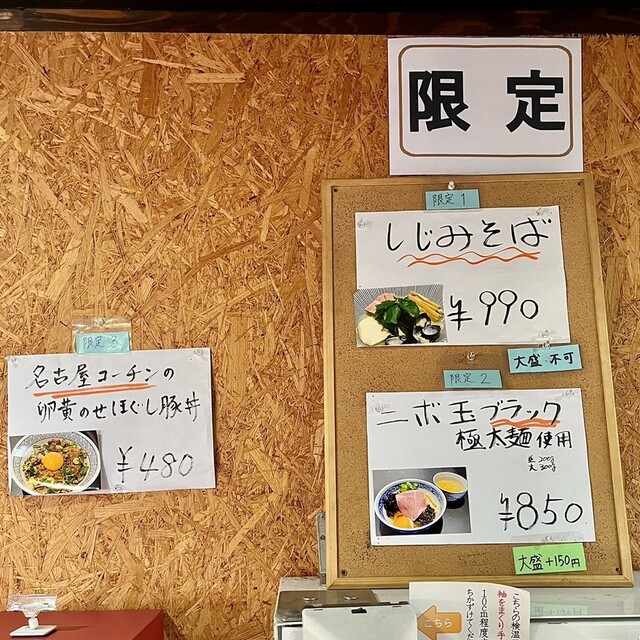 限定
限定1
しじみそば
¥990
大盛 不可
限定2
ニボ玉ブラック
極太麺使用
並200g
大300g
¥850
大盛+150円
限定3
名古屋コーチンの
卵黄のせほぐし豚丼
¥480
こちらの検温
袖をまくり手
10cm程度
ちかづけてくだ
こちら